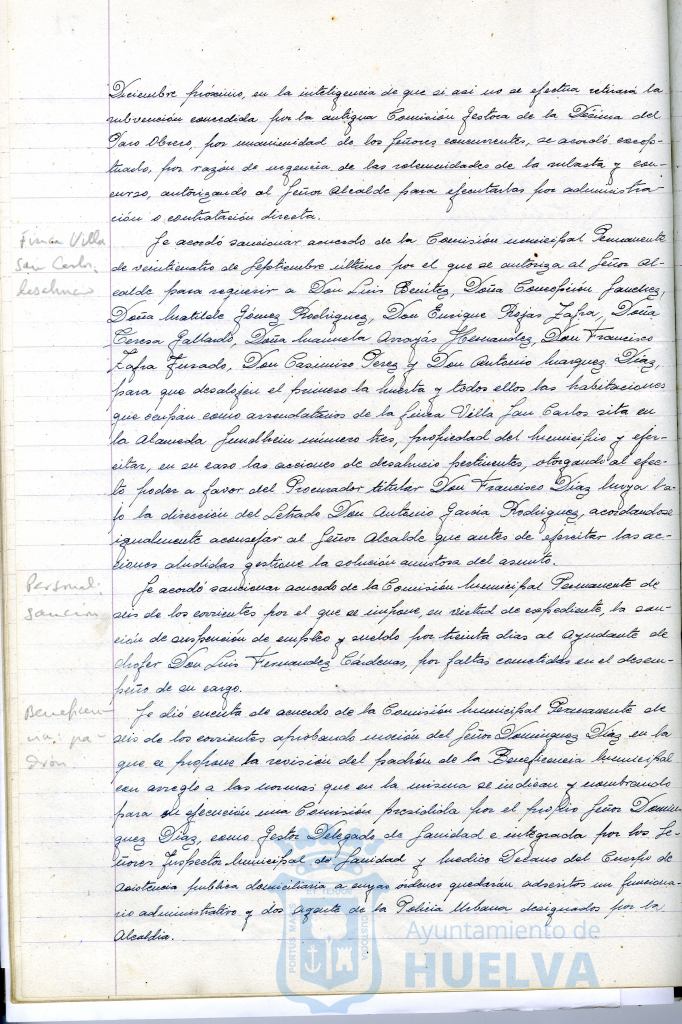 Diciembre próximo, en la inteligencia de que si asi no se efectua retirará la
subvención concedida por la antigua Comisión Gestora de la Décima del
Paro Obrero, por unanimidad de los Señores concurrentes, se acordó excep-
tuarlo, por razón de urgencia de las solemnidades de la subasta y con-
curso, autorizando al Señor Alcalde para ejecutarlas por administra-
ción o contratación directa.
Finca Villa
San Carlos.
Desahucio
Se acordó sancionar acuerdo de la Comisión municipal Permanente
de veinticuatro de Septiembre último por el que se autoriza al Señor Al-
calde para requerir a Don Luis Benitez, Doña Concepción Sanchez,
Doña Matilde Gómez Rodriguez, Don Enrique Rojas Zafra, Doña
Teresa Gallardo, Doña Manuela Arrayás Hernandez, Don Francisco
Zafra Jurado, Don Casimiro Perez y Don Antonio Marquez Diaz,
para que desalojen el primero la huerta y todos ellos las habitaciones
que ocupan como arrendatarios de la finca Villa San Carlos sita en
la Alameda Sundhein numero tres, propiedad del Municipio y ejer-
citar, en su caso las acciones de desahucio pertinentes, otorgando al efec-
to poder a favor del Procurador titular Don Francisco Diaz ba-
jo la dirección del Letrado Don Antonio Garcia Rodriguez, acordandose
igualmente aconsejar al Señor Alcalde que antes de ejercitar las ac-
ciones aludidas gestione la solución amistosa del asunto.
Personal.
Sanción
Se acordó sancionar acuerdo de la Comisión Municipal Permanente de
seis de los corrientes por el que se impone, en virtud de expediente, la san-
ción de suspención de empleo y sueldo por treinta dias al Ayudante de
chofer Don Luis Fernandez Cárdenas, por faltas cometidas en el desem-
peño de su cargo.
Beneficen-
cia: pa-
drón.
Se dió cuenta de acuerdo de la Comisión Municipal Permanente de
seis de los corrientes aprobando moción del Señor Dominguez Diaz en la
que se propone la revisión del padrón de la Beneficencia Municipal
con arreglo a las normas que en la misma se indican y nombrando
para su ejecución una Comisión presidida por el propio Señor Domin
guez Diaz, como Gestor Delegado de Sanidad e integrada por los Se-
ñores Inspector Municipal de Sanidad y Medico Decano del Cuerpo de
Asistencia publica domiciliaria a cuyas ordenes quedarán adscritos un funciona-
rio administrativo y dos Agente de la Policia Urbana designados por la
Alcaldia.
Ayuntamiento de
HUELVA